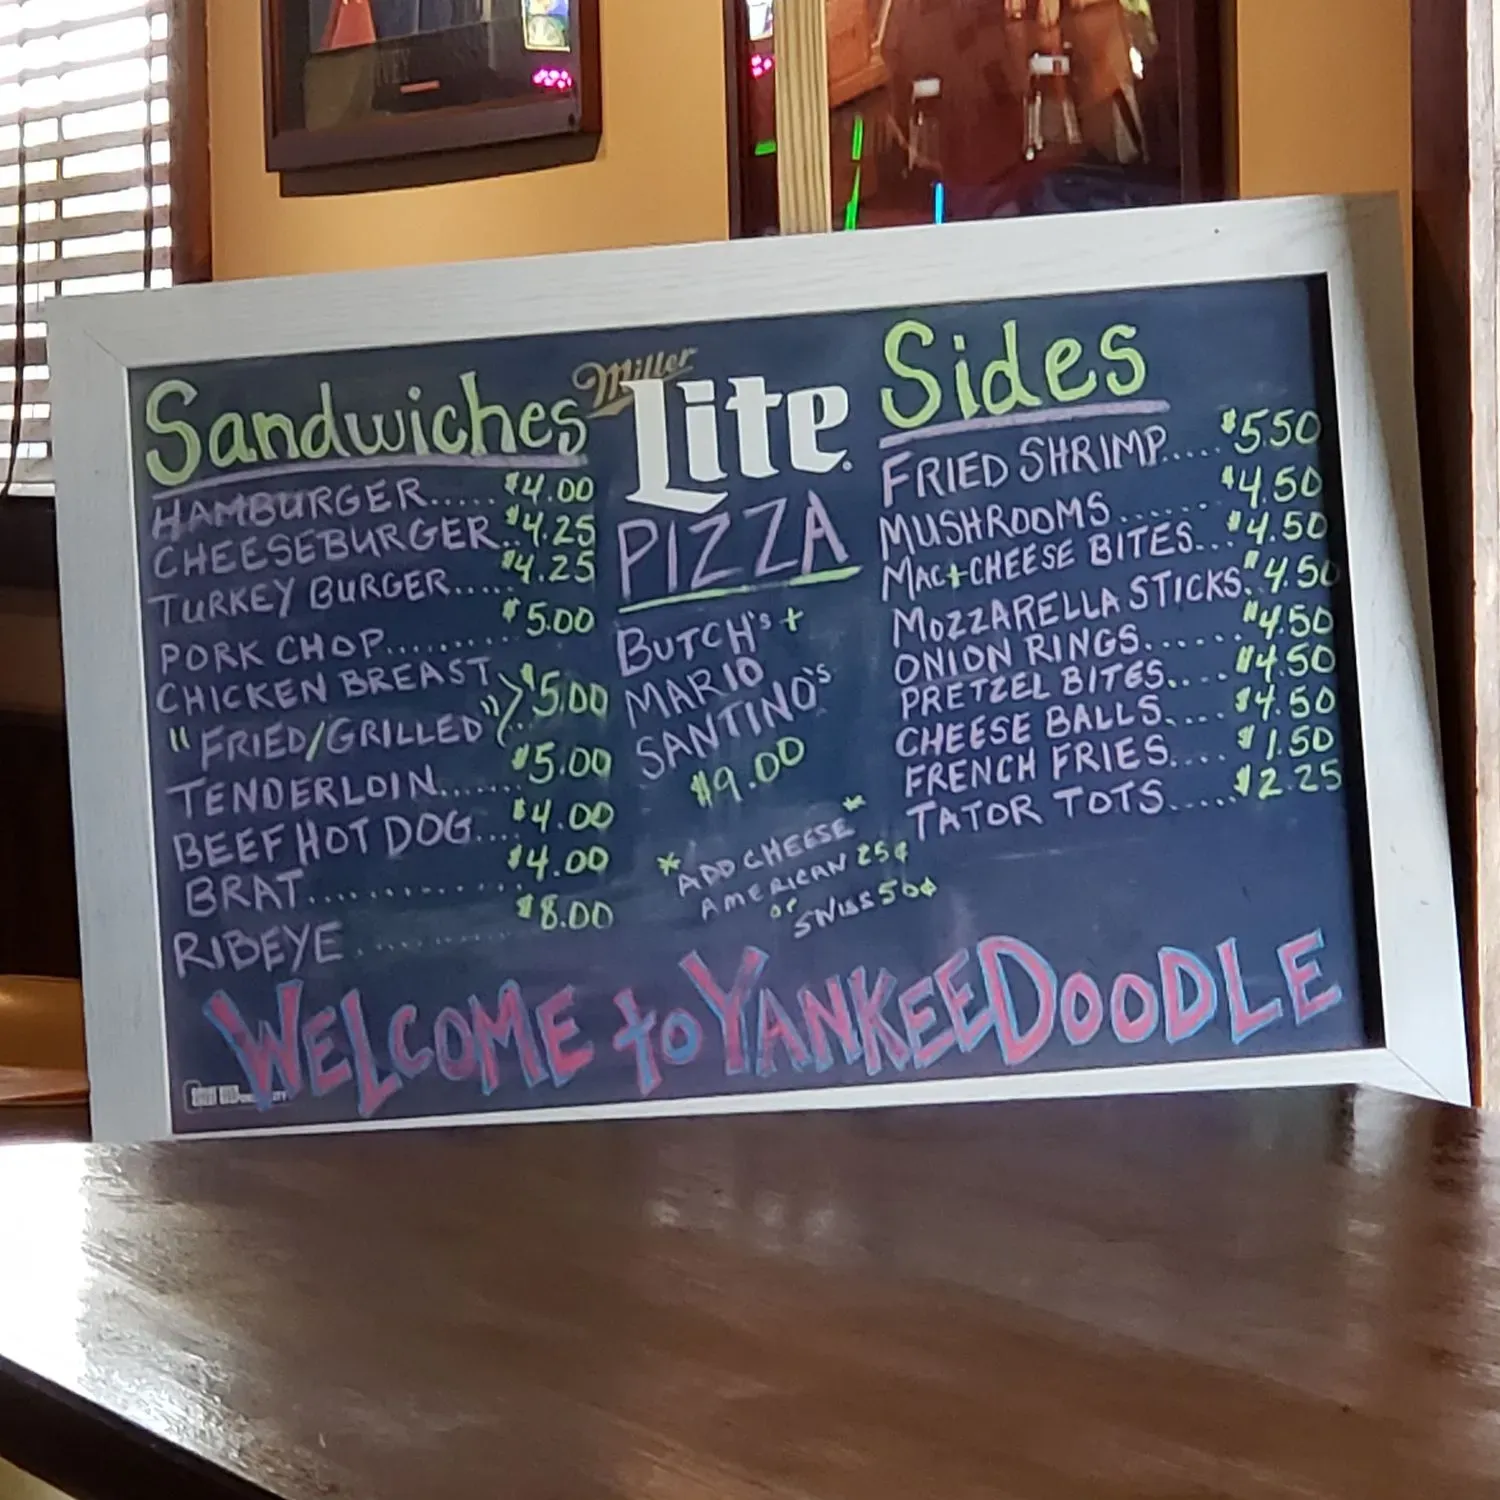 Sandwiches
HAMBURGER..... $4.00
CHEESEBURGER.. $4.25
TURKEY BURGER..... $4.25
PORK CHOP........ $5.00
CHICKEN BREAST
"FRIED/GRILLED" $5.00
TENDERLOIN....... $5.00
BEEF HOT DOG.... $4.00
BRAT............ $4.00
RIBEYE........... $8.00
Miller
Lite
PIZZA
BUTCH's +
MARIO
SANTINO's
$9.00
* ADD CHEESE *
AMERICAN 25¢
or
SWISS 50¢
Sides
FRIED SHRIMP..... $5.50
MUSHROOMS...... $4.50
MAC+CHEESE BITES... $4.50
MOZZARELLA STICKS. $4.50
ONION RINGS...... $4.50
PRETZEL BITES.... $4.50
CHEESE BALLS.... $4.50
FRENCH FRIES.... $1.50
TATOR TOTS..... $2.25
WELCOME to YANKEE DOODLE